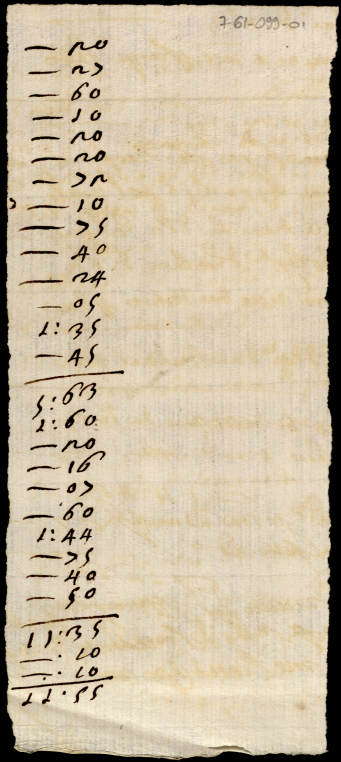 7-61-099-01
— 20
— 27
— 60
— 10
— 20
— 20
— 72
— 10
— 75
— 40
— 24
— 05
1:35
— 45
5:63
1:60
— 20
— 16
— 07
— 60
1:44
— 75
— 40
— 50
11:35
—:10
—:10
11:55